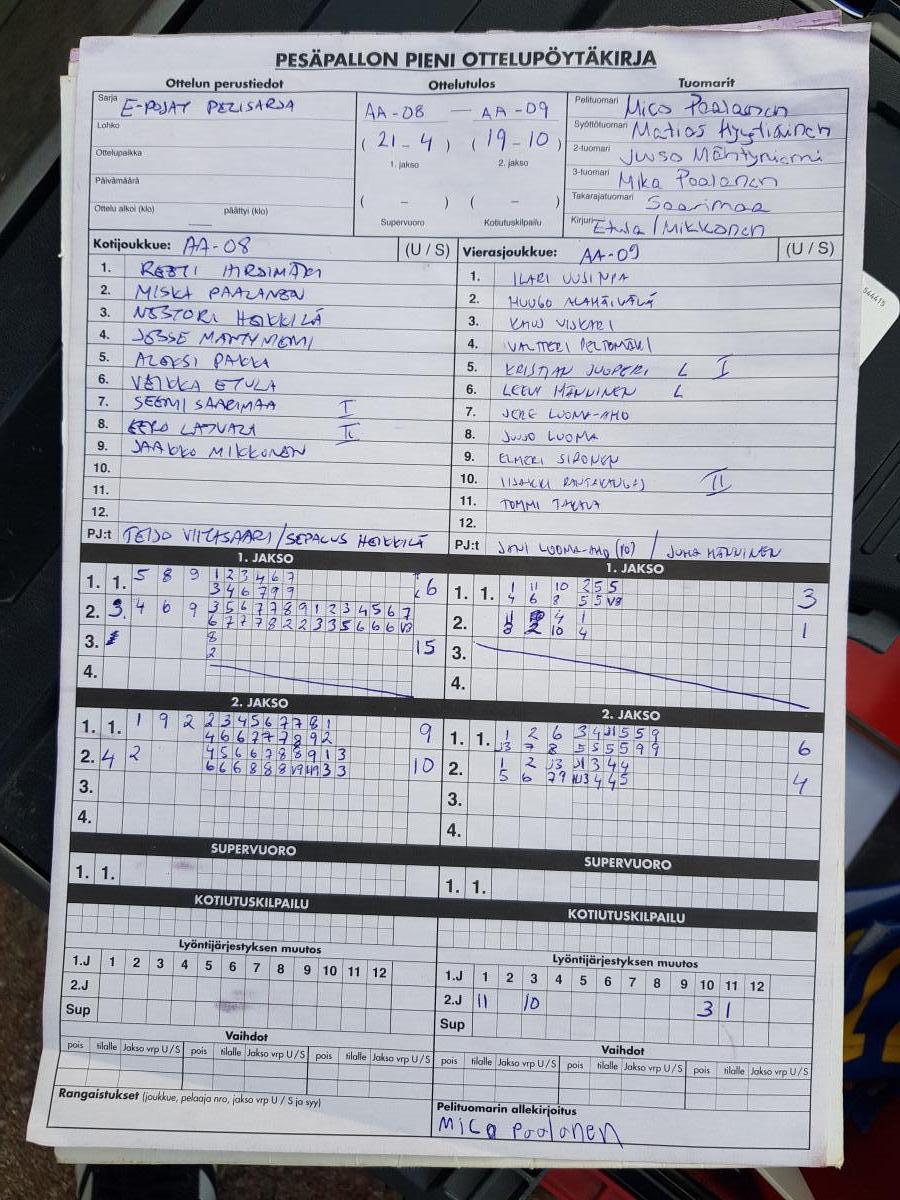 PESÄPALLON PIENI OTTELUPÖYTÄKIRJA
Ottelun perustiedot
Ottelutulos
Tuomarit
Sarja E-POJAT PELISARJA
AA-08 — AA-09
Pelituomari Mico Paalanen
Lohko
Syöttötuomari Matias
Ottelupaikka
(21-4) (19-10)
2-tuomari Juuso Mäntyniemi
1. jakso 2. jakso
3-tuomari Mika Paalanen
Päivämäärä
Takarajatuomari Saarimaa
Ottelu alkoi (klo) päättyi (klo)
( - ) ( - )
Supervuoro Kotiutuskilpailu
Kirjuri Etula/Mikkonen
Kotijoukkue: AA-08 (U / S)
1.
2. MISKA PAALANEN
3. NESTORI HEIKKILÄ
4. JESSE MÄNTYNIEMI
5. ALEKSI PAKKA
6. VEIKKA ETULA
7. SEEMI SAARIMAA I
8. EERO II
9. JAAKKO MIKKONEN
10.
11.
12.
PJ:t TEIJO VIITASAARI/SEPALUS HEIKKILÄ
Vierasjoukkue: AA-09 (U / S)
1. ILARI
2. HUUGO
3. VISKARI
4. VALTTERI PELTOMÄKI
5. KRISTIAN JUOPERI L I
6. LEEVI MÄNNINEN L
7. JERE LUOMA-AHO
8. JUUSO LUOMA
9. ELMERI SIRONEN
10. IISAKKI RANTAKANGAS II
11. TOMMI
12.
PJ:t JANI LUOMA-AHO (10) / JUHA MÄNNINEN
1. JAKSO
1. 1. 5 8 9 1 2 3 4 6 7 6
3 4 6 7 9 9
2. 3. 4 6 9 3 5 6 7 7 8 9 1 2 3 4 5 6 7
6 7 7 7 8 2 2 3 3 5 6 6 6 V3
3. 8 15
2
4.
1. JAKSO
1. 1. 1 11 10 2 5 5 3
4 6 8 5 5 V8
2. 11 4 1 1
8 2 10 4
3.
4.
2. JAKSO
1. 1. 1 9 2 2 3 4 5 6 7 7 8 1 9
4 6 6 7 7 7 8 9 2
2. 4 2 4 5 6 6 7 8 8 9 1 3 10
6 6 6 8 8 8 3 3
3.
4.
2. JAKSO
1. 1. 1 2 6 3 4 11 5 5 9 6
13 7 8 5 5 5 5 9 9
2. 1 2 13 11 3 4 4 4
5 6 7 9 4 4 5
3.
4.
SUPERVUORO
1. 1.
SUPERVUORO
1. 1.
KOTIUTUSKILPAILU
KOTIUTUSKILPAILU
Lyöntijärjestyksen muutos
1.J 1 2 3 4 5 6 7 8 9 10 11 12
2.J
Sup
Lyöntijärjestyksen muutos
1.J 1 2 3 4 5 6 7 8 9 10 11 12
2.J 11 10 3 1
Sup
Vaihdot
pois tilalle Jakso vrp U / S pois tilalle Jakso vrp U / S pois tilalle Jakso vrp U / S
Vaihdot
pois tilalle Jakso vrp U / S pois tilalle Jakso vrp U / S pois tilalle Jakso vrp U / S
Rangaistukset (joukkue, pelaaja nro, jakso vrp U / S ja syy)
Pelituomarin allekirjoitus
Mico Paalanen
544415